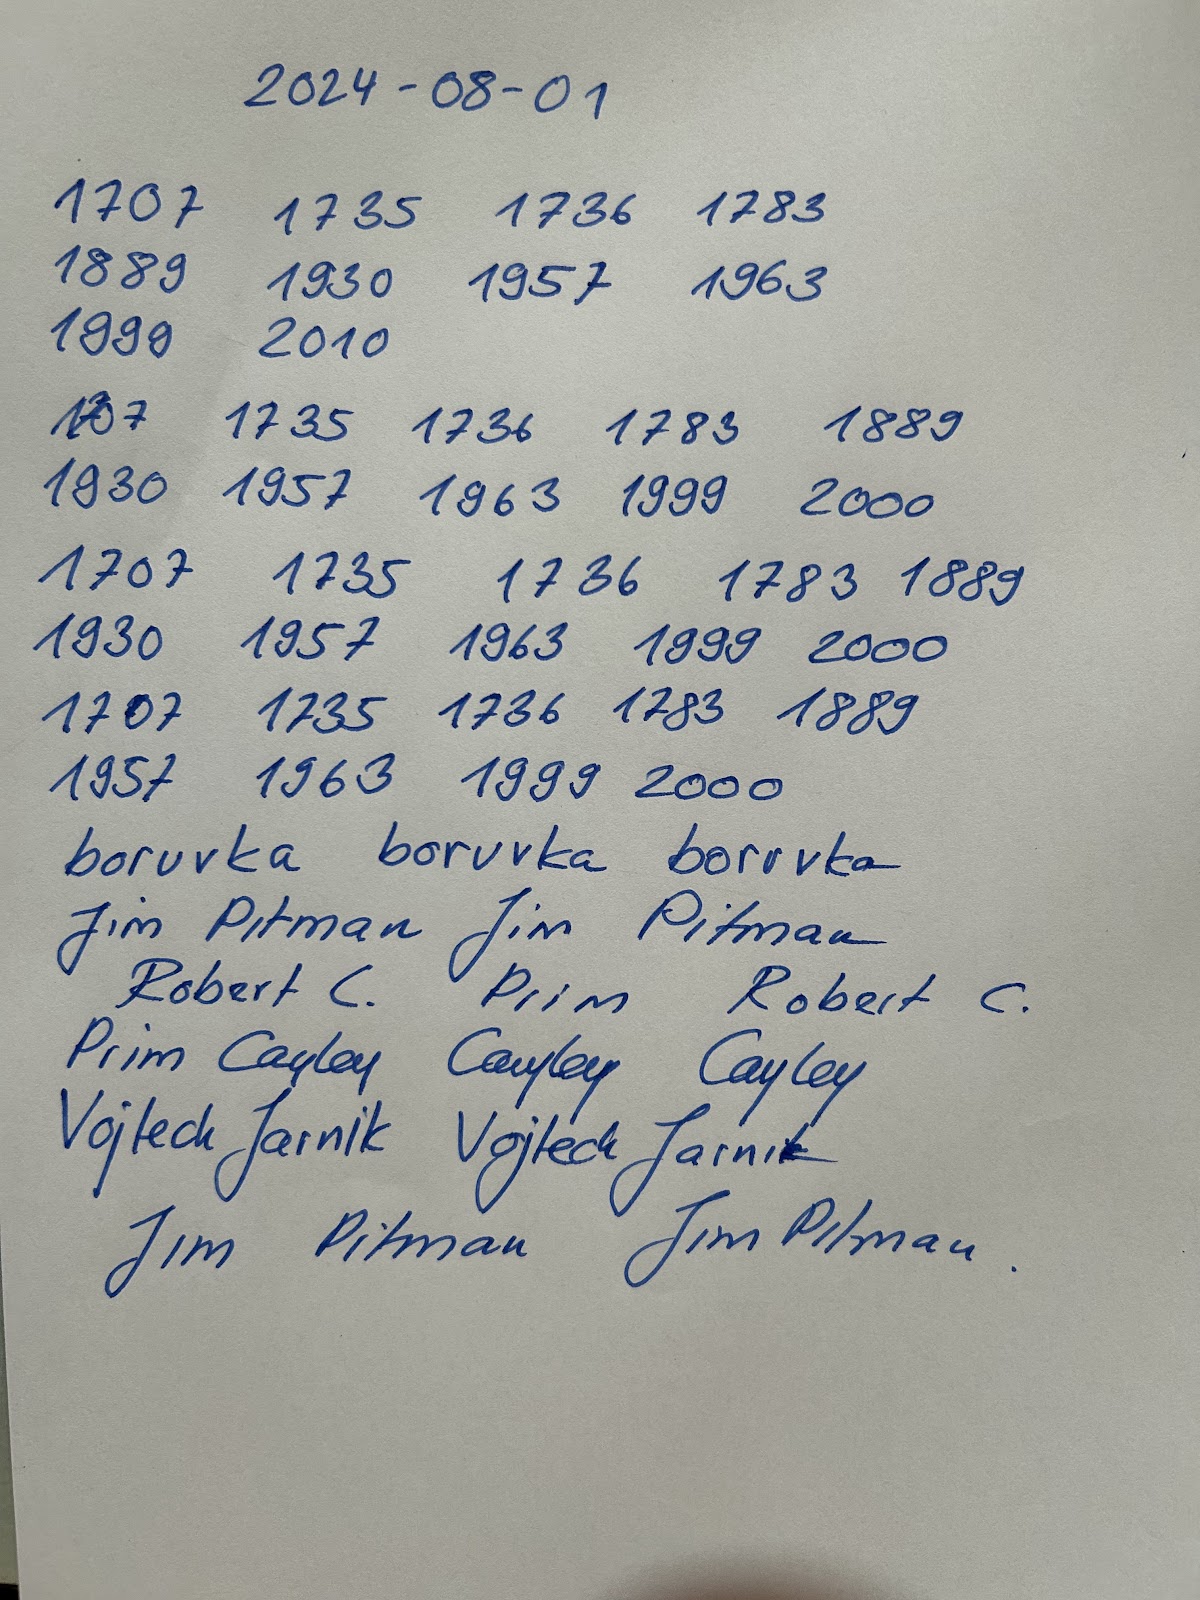 2024-08-01
1707 1735 1736 1783
1889 1930 1957 1963
1999 2010
1707 1735 1736 1783 1889
1930 1957 1963 1999 2000
1707 1735 1736 1783 1889
1930 1957 1963 1999 2000
1707 1735 1736 1783 1889
1957 1963 1999 2000
boruvka boruvka boruvka
Jim Pitman Jim Pitman
Robert C. Prim Robert C.
Prim Cayley Cayley Cayley
Vojtech Jarnik Vojtech Jarnik
Jim Pitman Jim Pitman.